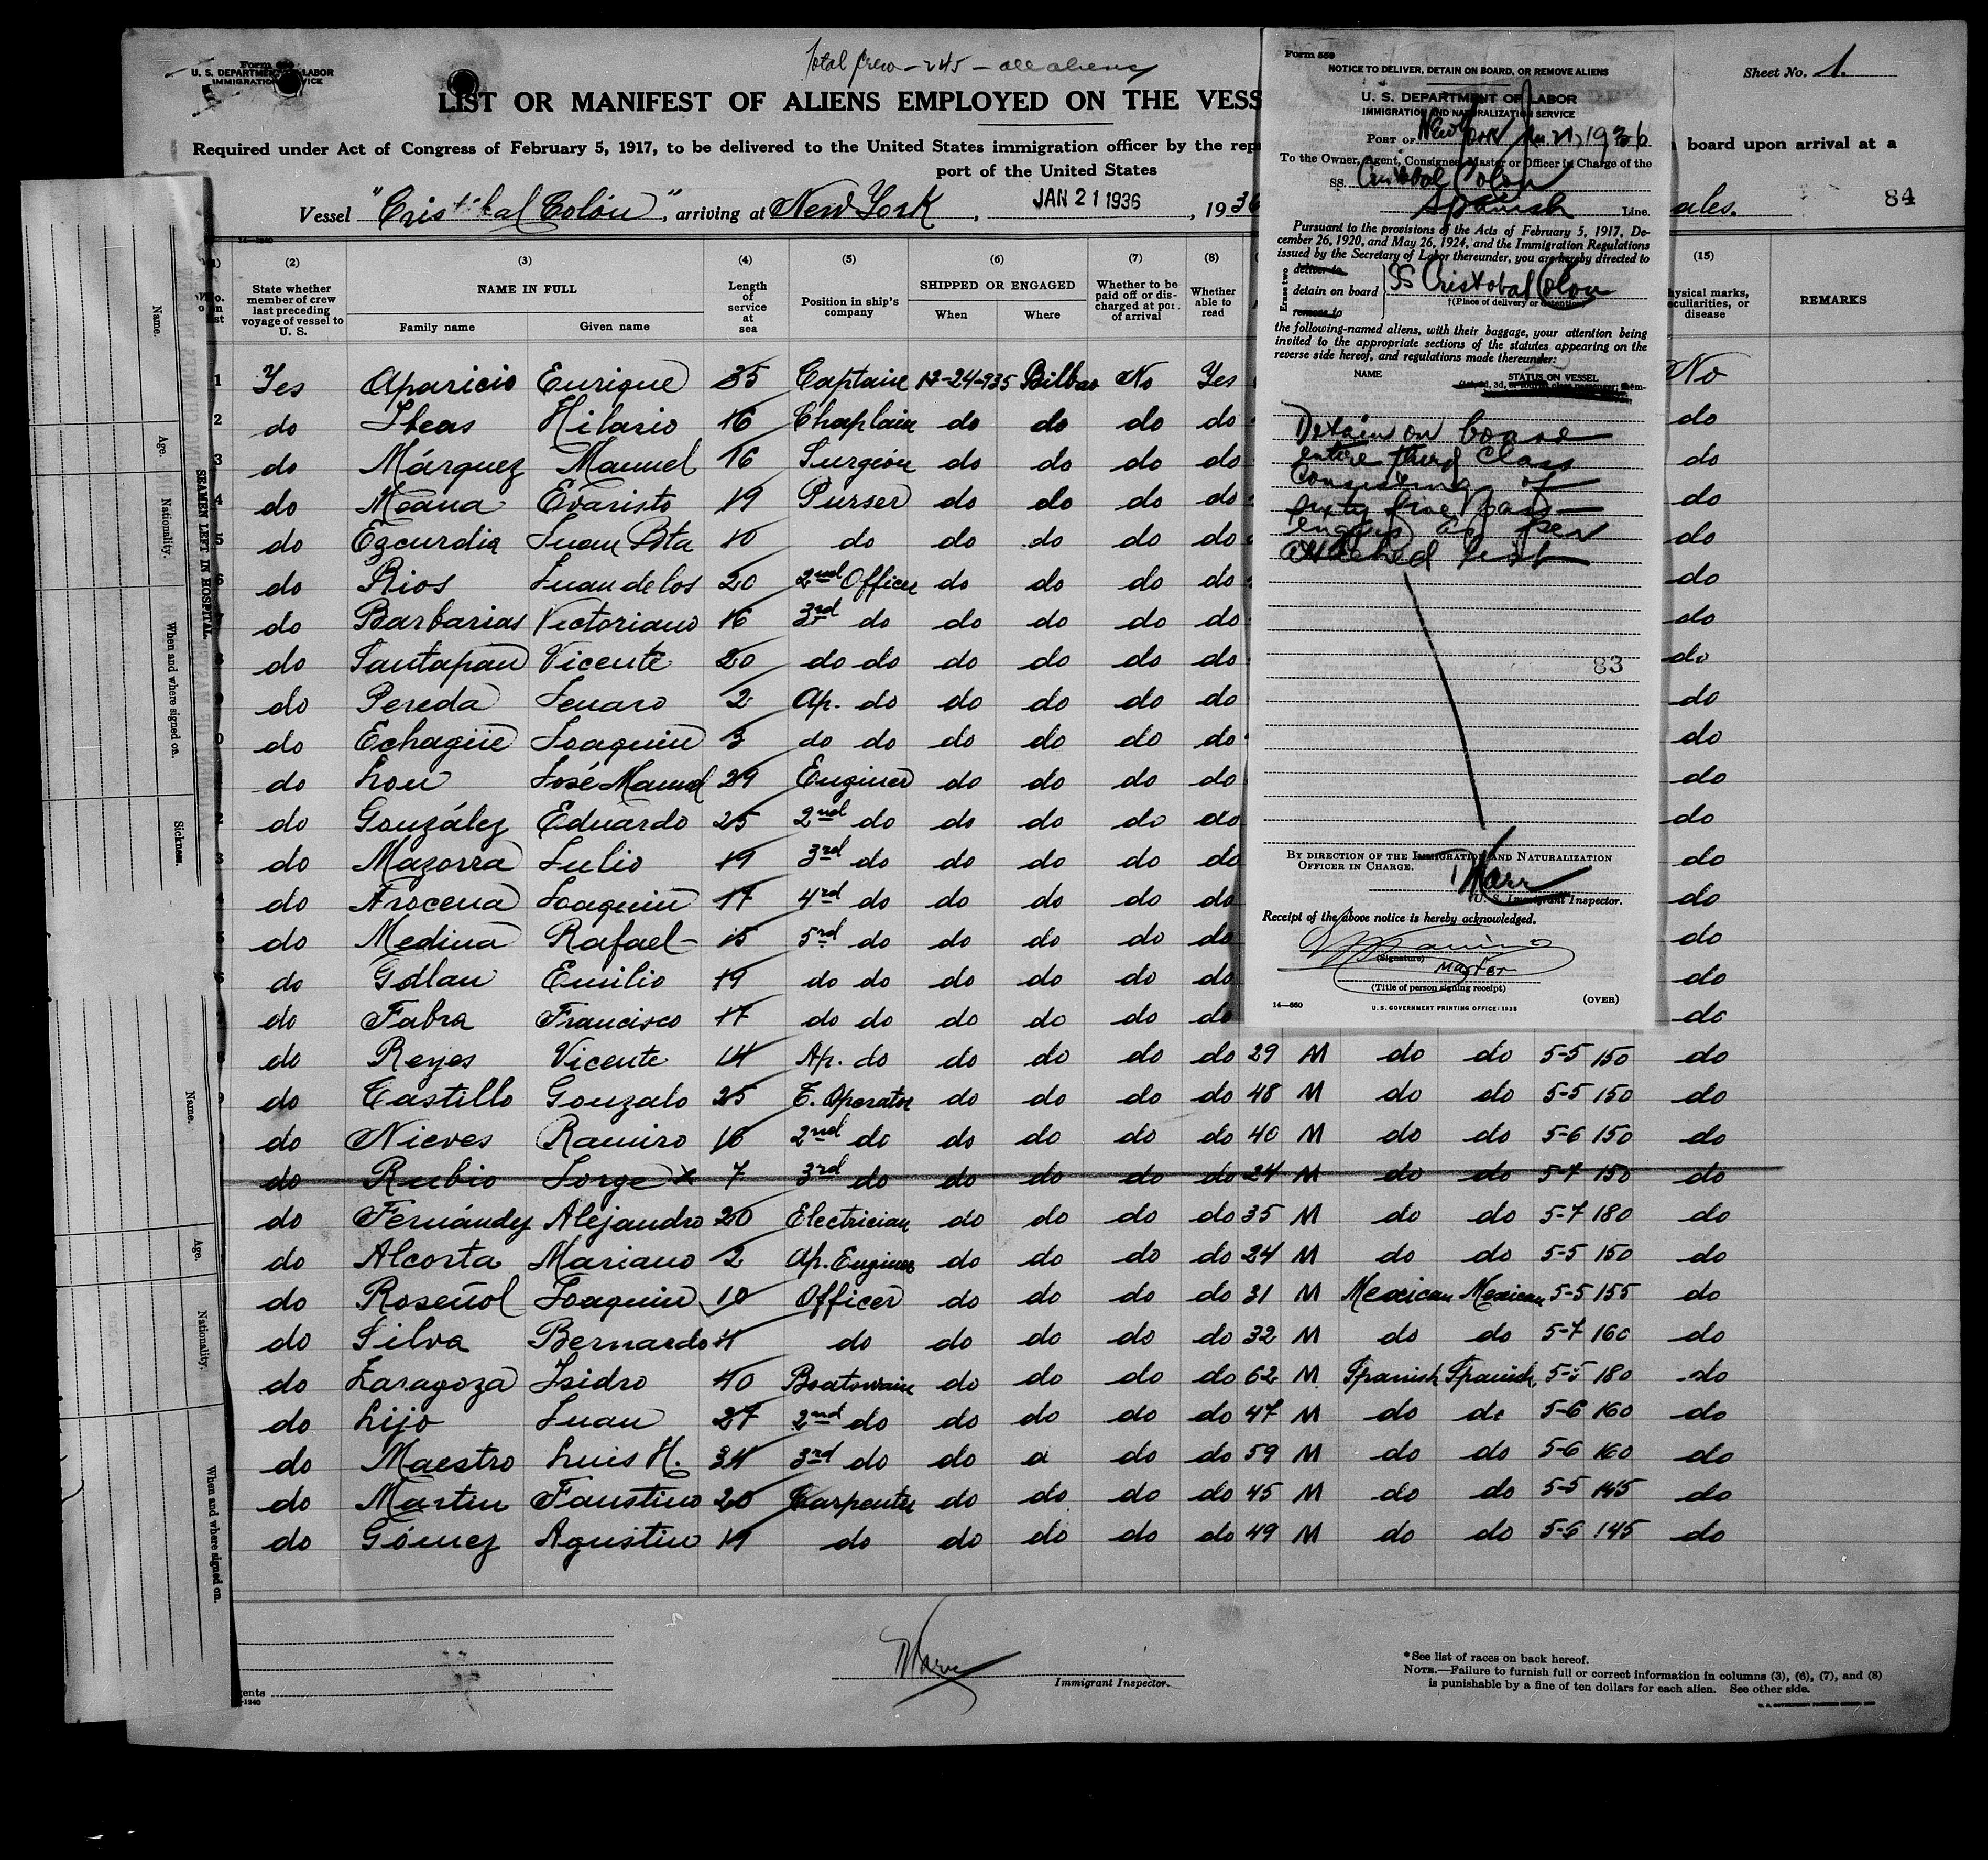 Total crew - 245 - all aliens
U. S. DEPARTMENT OF LABOR
IMMIGRATION SERVICE
LIST OR MANIFEST OF ALIENS EMPLOYED ON THE VESS
Sheet No. 1.
Required under Act of Congress of February 5, 1917, to be delivered to the United States immigration officer by the rep
board upon arrival at a
port of the United States
Vessel "Cristóbal Colón", arriving at New York, JAN 21 1936, 1936
ales.
84
14-1240
(2) (3) (4) (5) (6) (7) (8) (15)
State whether member of crew last preceding voyage of vessel to U. S.
NAME IN FULL
Family name Given name
Length of service at sea
Position in ship's company
SHIPPED OR ENGAGED
When Where
Whether to be paid off or discharged at port of arrival
Whether able to read
ysical marks, eculiarities, or disease
REMARKS
1 Yes Aparicio Enrique 35 Captain 12-24-935 Bilbao No Yes No
2 do Ibeas Hilario 16 Chaplain do do do do do
3 do Márquez Manuel 16 Surgeon do do do do do
4 do Meana Evaristo 19 Purser do do do do do
5 do Ezcurdia Juan Bta 10 do do do do do do
6 do Rios Juan de los 20 2nd Officer do do do do do
7 do Barbarias Victoriano 16 3rd do do do do do do
8 do Santapau Vicente 20 do do do do do do do
9 do Pereda Jenaro 2 Ap. do do do do do do
0 do Echagüe Joaquin 3 do do do do do do do
do Lou José Manuel 29 Enginer do do do do do
2 do González Eduardo 25 2nd do do do do do do
3 do Mazorra Julio 19 3rd do do do do do do
4 do Arocena Joaquin 17 4rd do do do do do do
5 do Medina Rafael 15 5rd do do do do do do
6 do Emilio 19 do do do do do do do
do Fabra Francisco 17 do do do do do do do
do Reyes Vicente 14 Ap. do do do do do 29 M do do 5-5 150 do
do Castillo Gonzalo 25 T. Operator do do do do 48 M do do 5-5 150 do
do Nieves Ramiro 16 2nd do do do do do 40 M do do 5-6 150 do
do Rubio Jorge x 7 3rd do do do do do 24 M do do 5-7 150 do
do Fernández Alejandro 20 Electrician do do do do 35 M do do 5-7 180 do
do Alcorta Mariano 2 Ap. Enginer do do do do 24 M do do 5-5 150 do
do Roseñol Joaquin 10 Officer do do do do 31 M Mexican Mexican 5-5 155 do
do Silva Bernardo 11 do do do do do 32 M do do 5-7 160 do
do Zaragoza Isidro 40 Boatswain do do do do 62 M Spanish Spanish 5-5 180 do
do Lijo Juan 27 2nd do do do do do 47 M do do 5-6 160 do
do Maestro Luis H. 34 3rd do do a do do 59 M do do 5-6 160 do
do Martin Faustino 20 Carpenter do do do do 45 M do do 5-5 145 do
do Gómez Agustin 19 do do do do do 49 M do do 5-6 145 do
Immigrant Inspector.
*See list of races on back hereof.
NOTE.—Failure to furnish full or correct information in columns (3), (6), (7), and (8)
is punishable by a fine of ten dollars for each alien. See other side.
Form 559
NOTICE TO DELIVER, DETAIN ON BOARD, OR REMOVE ALIENS
U. S. DEPARTMENT OF LABOR
IMMIGRATION AND NATURALIZATION SERVICE
PORT OF New York Jan. 21, 1936
To the Owner, Agent, Consignee, Master or Officer in Charge of the
SS. Cristobal Colon
Spanish Line.
Pursuant to the provisions of the Acts of February 5, 1917, De-
cember 26, 1920, and May 26, 1924, and the Immigration Regulations
issued by the Secretary of Labor thereunder, you are hereby directed to
Erase two
deliver to
detain on board
remove to
SS Cristobal Colon
†(Place of delivery or detention)
the following-named aliens, with their baggage, your attention being
invited to the appropriate sections of the statutes appearing on the
reverse side hereof, and regulations made thereunder:
NAME STATUS ON VESSEL
Detain on board
entire third class
consisting of
sixty five pass-
engers as per
attached list
83
BY DIRECTION OF THE IMMIGRATION AND NATURALIZATION
OFFICER IN CHARGE.
U. S. Immigrant Inspector.
Receipt of the above notice is hereby acknowledged.
(Signature)
Master
(Title of person signing receipt)
14—660 U. S. GOVERNMENT PRINTING OFFICE: 1935 (OVER)
SEAMEN LEFT IN HOSPITAL.
Name.
Age.
Nationality.
When and where signed on.
Sickness.
Name.
Age.
Nationality.
When and where signed on.